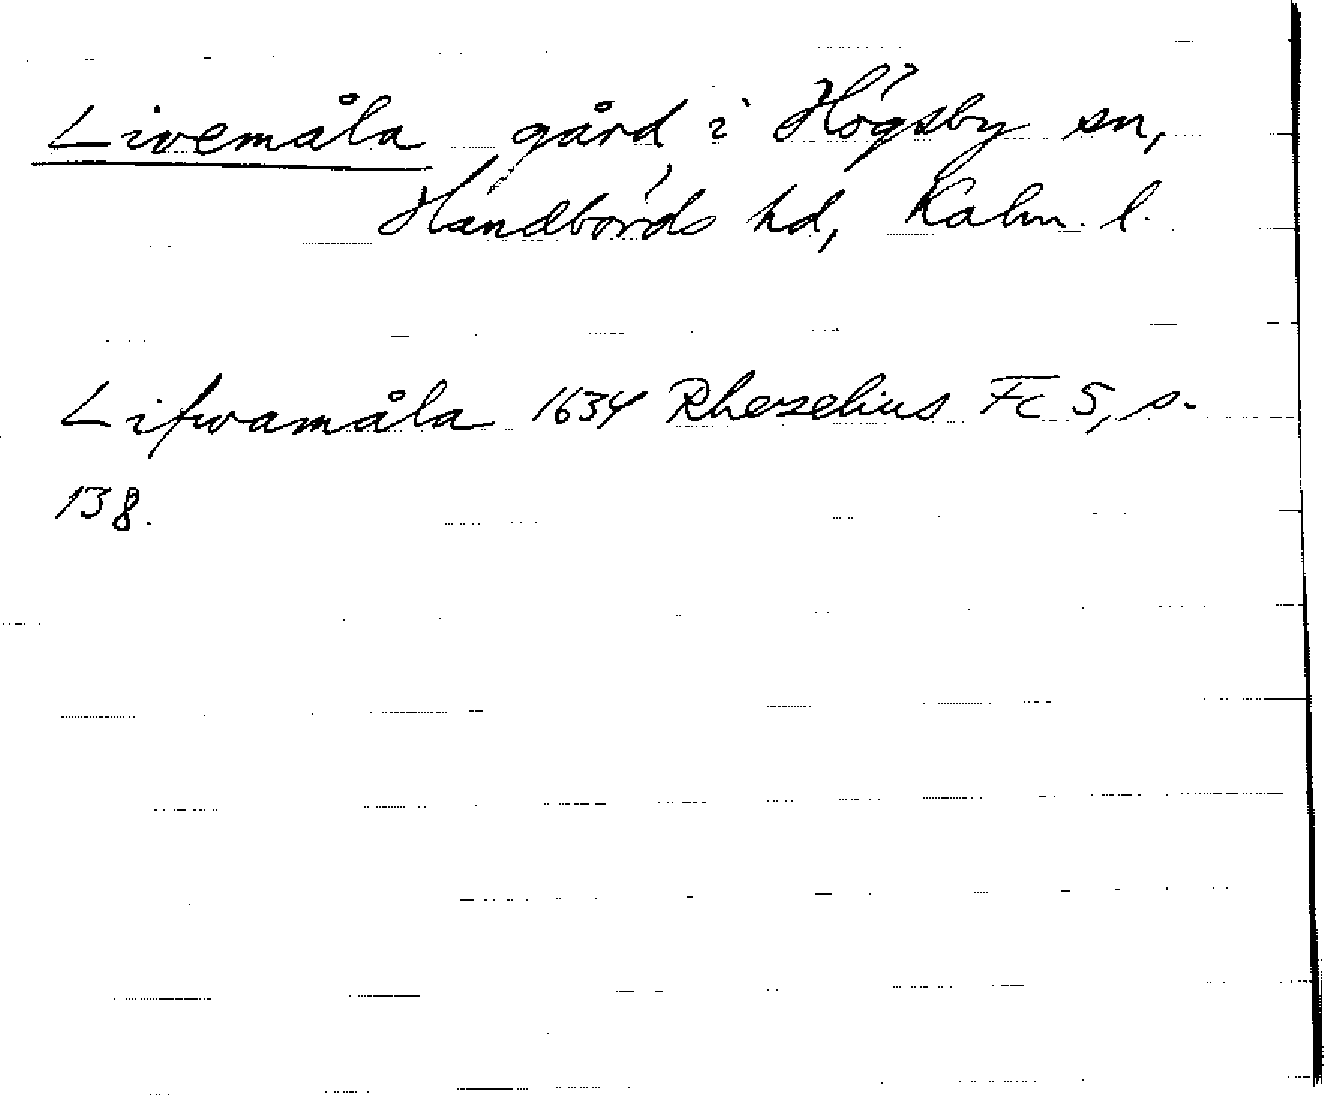 Livemåla gård i Högsby sn,
Handbörds hd, Kalm. l.
Lifwamåla 1634 Rhezelius Fc 5, s.
138.